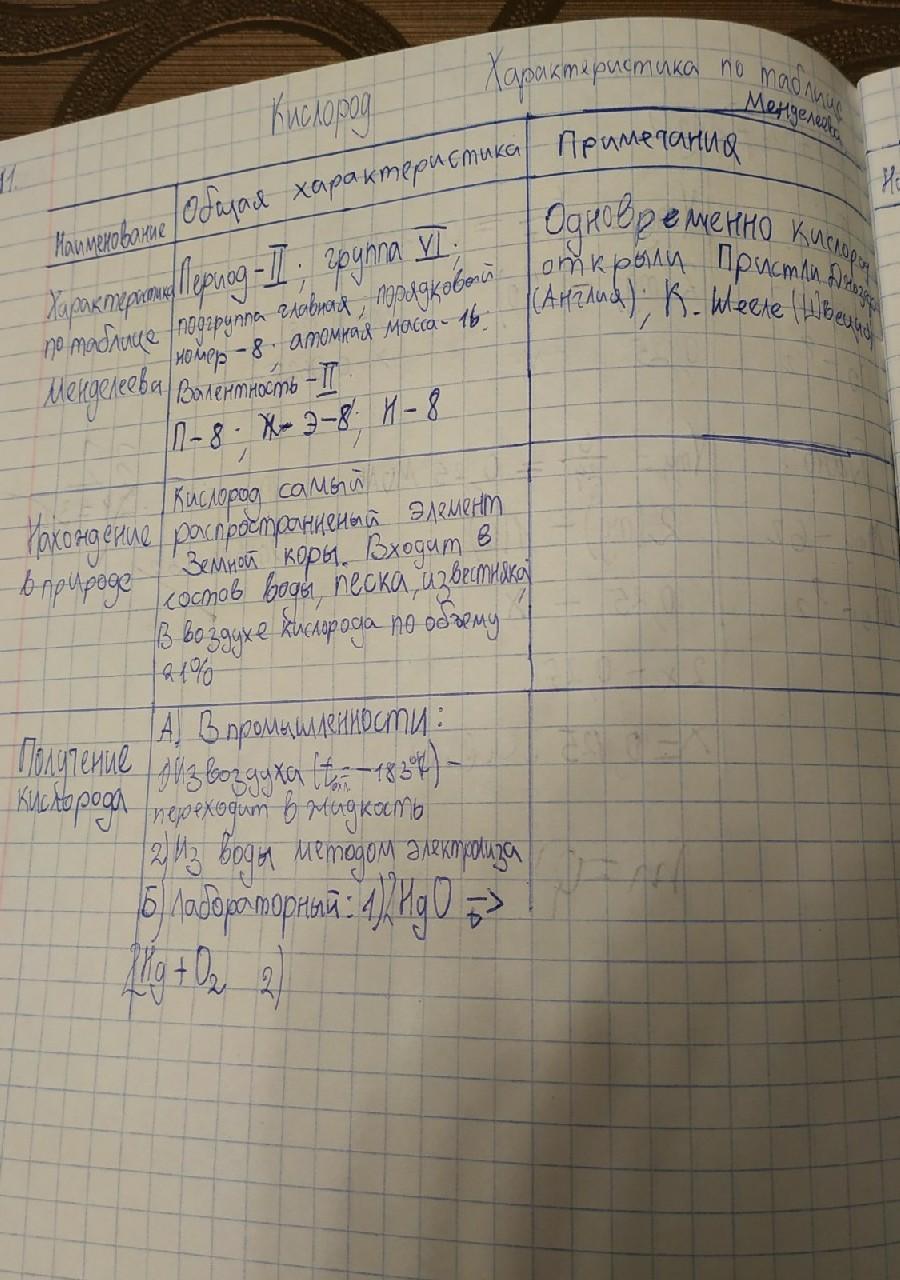 Кислород
Характеристика по таблице
Менделеева
11.
Наименование
Общая характеристика
Примечания
Характеристика
по таблице
Менделеева
Период - II ; группа VI ;
подгруппа главная ; порядковый
номер - 8 ; атомная масса - 16.
Валентность - II
П - 8 ; Э - 8 ; Н - 8
Одновременно кислород
открыли Пристли Джозеф
(Англия) ; К. Шееле (Швеция)
Нахождение
в природе
Кислород самый
распространненый элемент
Земной коры. Входит в
состов воды, песка, известняка,
В воздухе кислорода по объему
21%
Получение
кислорода
А) В промышленности:
1) Из воздуха ( - 183°) -
переходит в жидкость
2) Из воды методом электролиза
Б) Лабораторный: 1) 2HgO →
2Hg + O₂ 2)